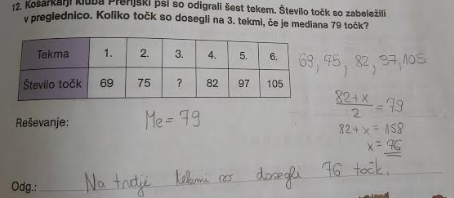 12. Košarkarji kluba Prerijski psi so odigrali šest tekem. Število točk so zabeležili
v preglednico. Koliko točk so dosegli na 3. tekmi, če je mediana 79 točk?
Tekma 1. 2. 3. 4. 5. 6.
Število točk 69 75 ? 82 97 105
69, 75, 82, 97, 105
Reševanje: Me = 79
82+x / 2 = 79
82 + x = 158
x = 76
Odg.: Na tretji tekmi so dosegli 76 točk.